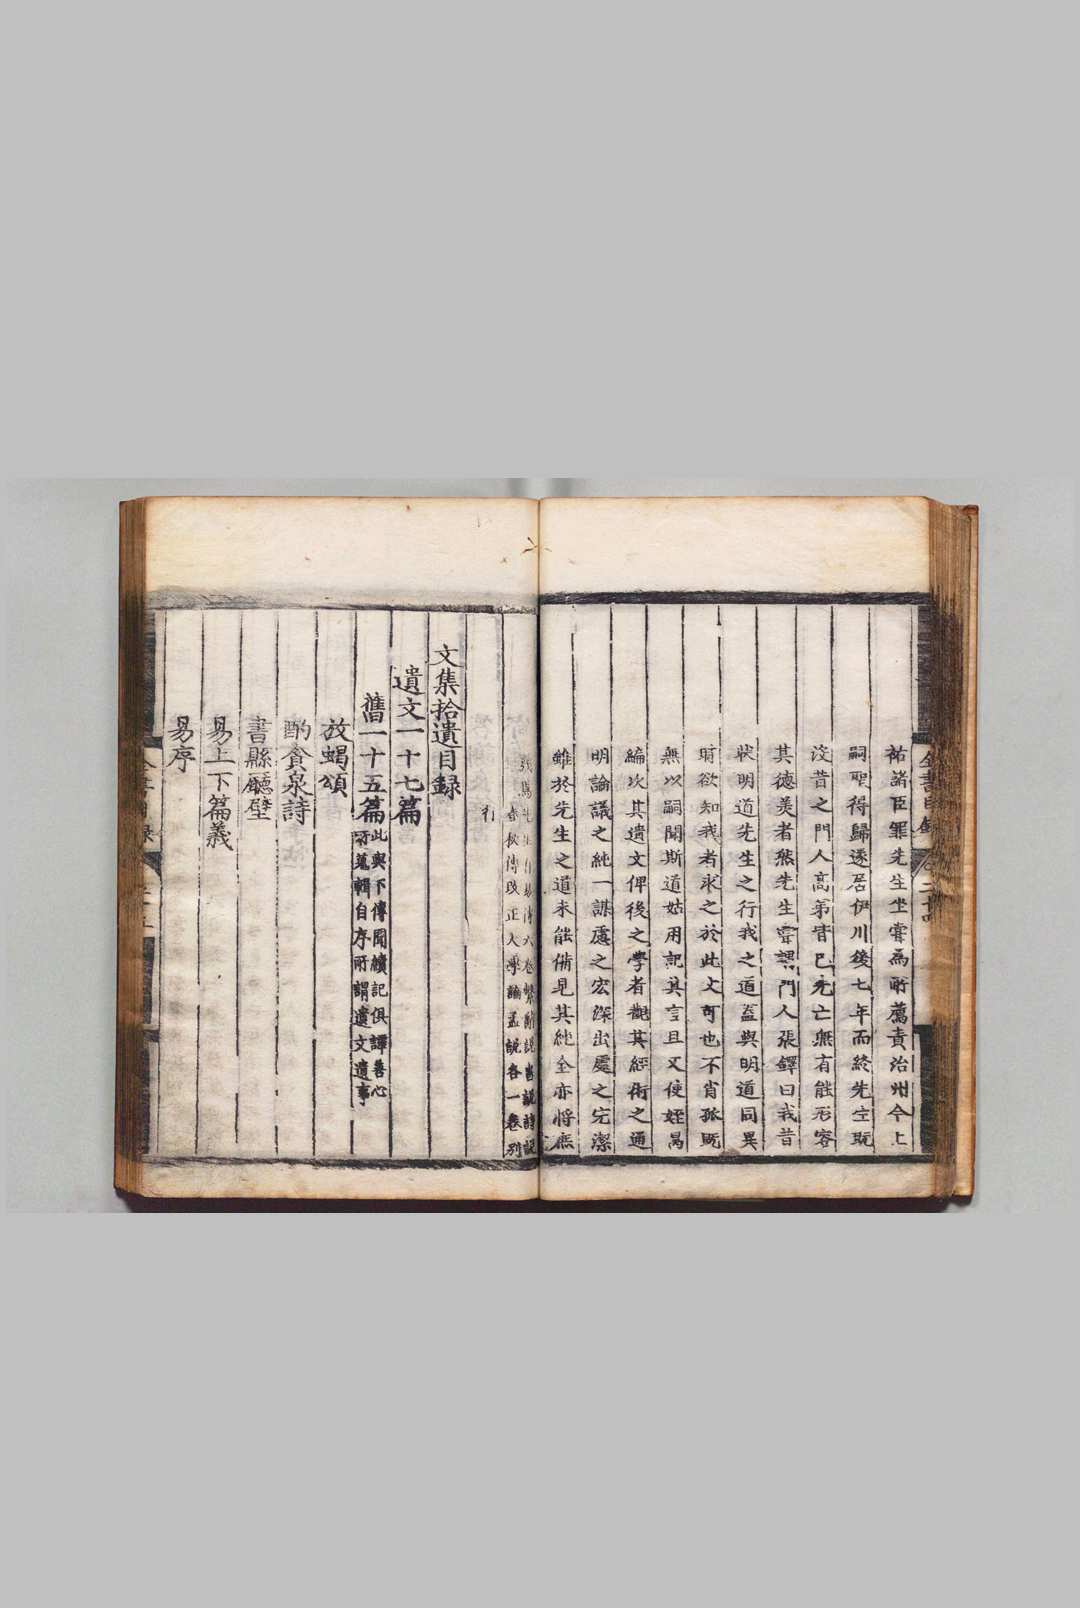 祐諸臣罪先生坐嘗爲所薦責治州今上
嗣聖得歸遂居伊川後七年而終先生既
沒昔之門人高弟皆已先亡無有能形容
其德美者然先生嘗謂門人張繹曰我昔
狀明道先生之行我之道蓋與明道同異
時欲知我者求之於此文可也不肖孤既
無以嗣聞斯道姑用記其言且又使姪昺
編次其遺文俾後之學者觀其經術之通
明論議之純一謀慮之宏深出處之完潔
雖於先生之道未能備見其純全亦將庶
先生有易傳六卷繫辭說書說詩說
春秋傳改正大學論孟說各一卷別
行
文集拾遺目錄
遺文一十七篇
舊一十五篇此與下傳聞續記俱譚善心
所蒐輯自序所謂遺文遺事
放蝎頌
酌貪泉詩
書縣廳壁
易上下篇義
易序